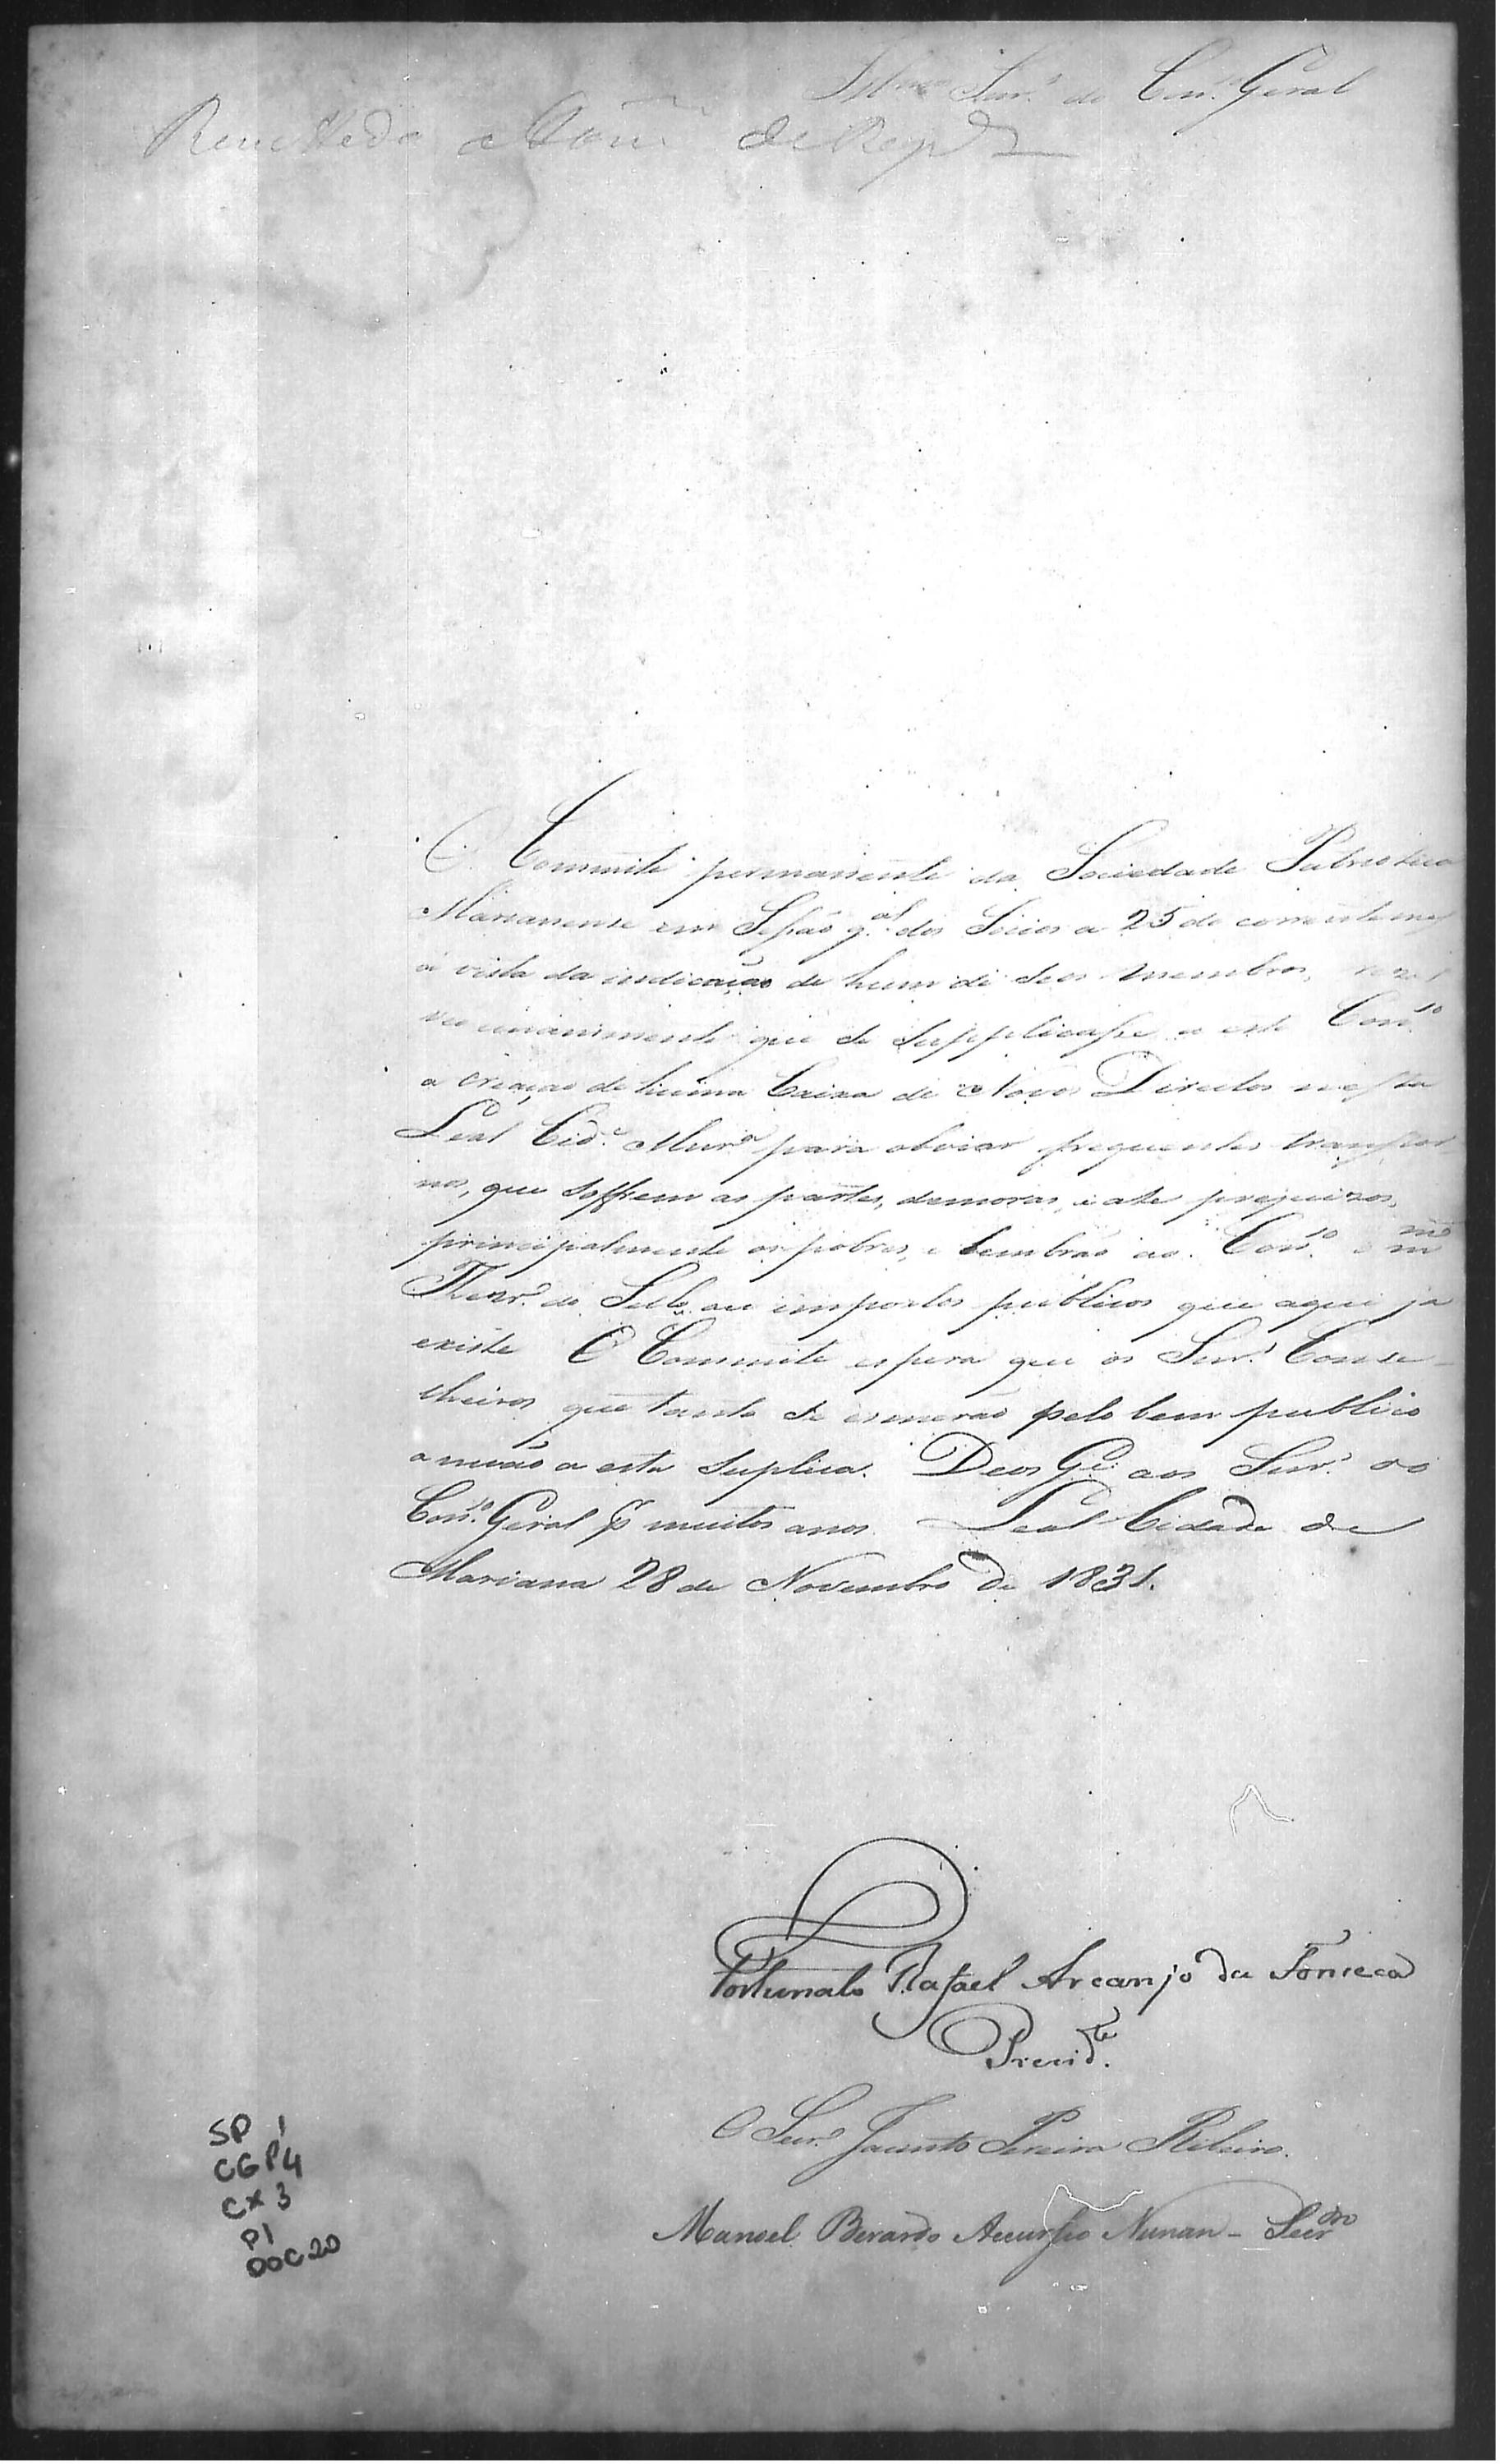 Snr.s do Con. Geral
Remettedo a Com. de Reprez
O Committe permanente da Sociedade Patriotica
Marianense em Sessão g.al dos Socios a 25 do corrente mez
á vista da indicação de hum de seos membros, rezol
veo unanimemente que se supplicasse a este Con.so
a creação de huma Caixa de Novos Direitos nesta
Leal Cid.e Mar.a para obviar frequentes transtor
nos, que soffrem as partes, demoras, e até prejuizos,
principalmente os pobres, e lembrão ao Con.so o mmo
Thezr.o do Sello ou impostos publicos que aqui já
existe O Committe espera que os Snr.s Conse-
lheiros que tanto se esmerão pelo bem publico
anuão a esta suplica. Deos G.e aos Snr.s do
Con.so Geral p.r muitos anos. Leal Cidade de
Mariana 28 de Novembro de 1831.
Fortunato Rafael Arcanjo da Fonseca
Prezid.te
O Secr.o Jacinto Pereira Ribeiro.
Manoel Berardo Accursio Nunan - Secr.rio
SP 1
CGP4
CX 3
P1
DOC 20